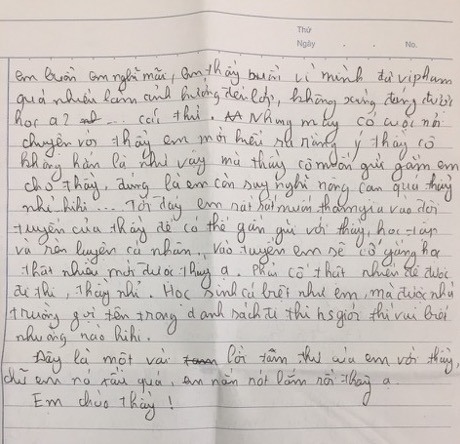 Thứ
Ngày . . No.
em buồn em nghĩ mãi, em thấy buồn vì mình đã vi phạm
quá nhiều làm ảnh hưởng đến lớp, không xứng đáng được
học a2 ... cái thì. Nhưng may có cuộc nói
chuyện với thầy em mới hiểu ra rằng ý thầy cô
không hẳn là như vậy mà thầy cô muốn gửi gắm em
cho thầy, đúng là em còn suy nghĩ nông cạn quá thầy
nhỉ hihi... Tới đây em rất rất muốn tham gia vào đội
tuyển của thầy để có thể gần gũi với thầy, học tập
và rèn luyện cá nhân, vào tuyển em sẽ cố gắng học
thật nhiều mới được thầy ạ. Phải cố thật nhiên để được
đi thi, thầy nhỉ. Học sinh cá biệt như em, mà được nhà
trường gọi tên trong danh sách đi thi hs giỏi thì vui biết
nhường nào hihi.
Đây là một vài lời tâm thư của em với thầy,
chữ em nó xấu quá, em nắn nót lắm rồi thầy ạ.
Em chào thầy!